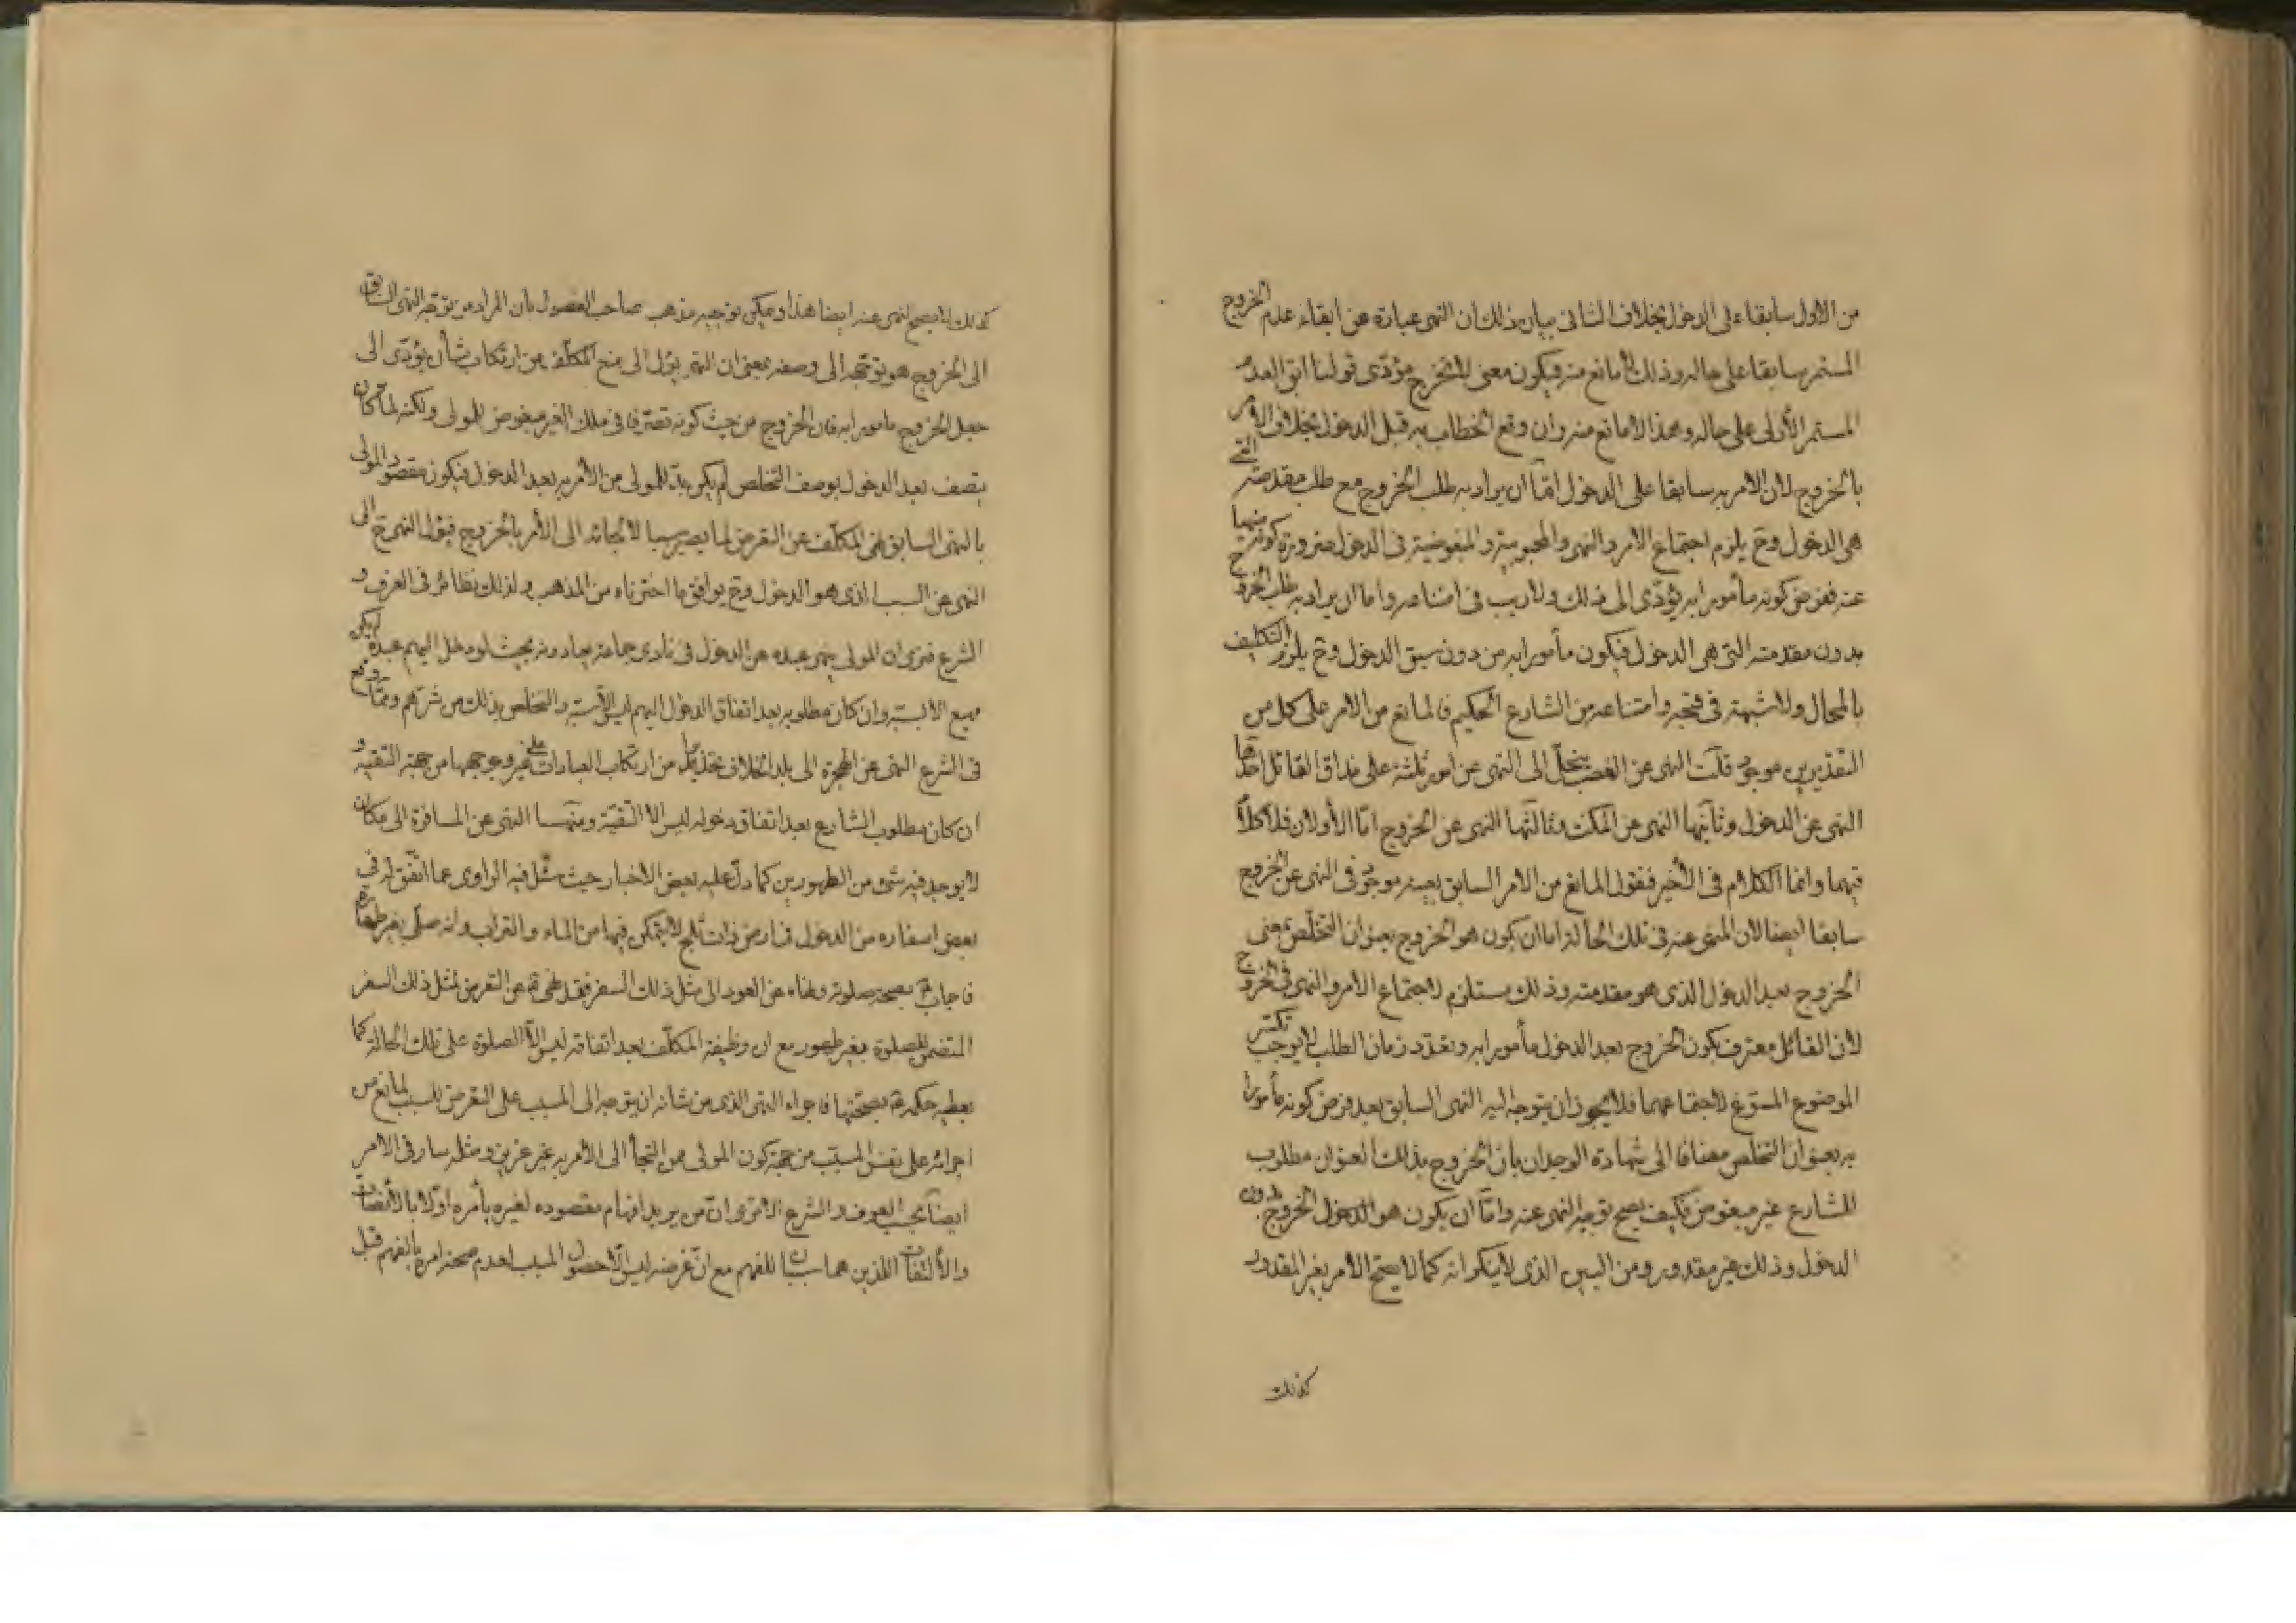 من الاول سابقا على الدخول بخلاف الثانى بيان ذلك ان النهى عبارة عن ابقاء عدم الخروج
المستمر سابقا على حاله وذلك لا مانع منه فيكون معنى لا تخرج مؤدّى قولنا ابق العدم
المستمر الأزلى على حاله وهذا لا مانع منه وان وقع الخطاب به قبل الدخول بخلاف الامر
بالخروج لان الامر به سابقا على الدخول امّا ان يراد به طلب الخروج مع طلب مقدمته التى
هى الدخول وح يلزم اجتماع الامر والنهى والمحبوبية والمبغوضية فى الدخول ضرورة كونه منهيا
عنه ففرض كونه مأمورا به يؤدّى الى ذلك ولا ريب فى امتناعه واما ان يراد به طلب الخروج
بدون مقدمته التى هى الدخول فيكون مأمورا به من دون سبق الدخول وح يلزم التكليف
بالمحال ولا شبهة فى قبحه وامتناعه من الشارع الحكيم فالمانع من الامر على كل من
التقديرين موجود قلت النهى عن الغصب ينحلّ الى النهى عن امور ثلثة على مذاق القائل احدها
النهى عن الدخول وثانيها النهى عن المكث وثالثها النهى عن الخروج امّا الأولان فلا كلام
فيهما وانما الكلام فى الأخير فنقول المانع من الامر السابق بعينه موجود فى النهى عن الخروج
سابقا ايضا لان المنهى عنه فى تلك الحالة اما ان يكون هو الخروج بعنوان التخلّص بمعنى
الخروج بعد الدخول الذى هو مقدمته وذلك مستلزم لاجتماع الامر والنهى فى الخروج
لان القائل معترف بكون الخروج بعد الدخول مأمورا به وتعدّد زمان الطلب لا يوجب تكثر
الموضوع المسوّغ لاجتماعهما فلا يجوز ان يتوجه اليه النهى السابق بعد فرض كونه مأمورا
به بعنوان التخلص مضافا الى شهادة الوجدان بان الخروج بذلك العنوان مطلوب
للشارع غير مبغوض فكيف يصح توجيه النهى عنه وامّا ان يكون هو الدخول الخروج بدون
الدخول وذلك غير مقدور ومن البيّن الذى لا ينكر انه كما لا يصحّ الامر بغير المقدور
كذلك
كذلك لا يصح النهى عنه ايضا هذا ويمكن توجيه مذهب صاحب الفصول بان المراد من توجّه النهى السابق
الى الخروج هو توجّهه الى وصفه بمعنى ان النهى يؤل الى منع المكلّف من ارتكاب شأن يؤدّى الى
جعل الخروج مأمورا به فان الخروج من حيث كونه تصرّفا فى ملك الغير مبغوض للمولى ولكنه لما كان
يتصف بعد الدخول بوصف التخلص لم يكن بدّ للمولى من الأمر به بعد الدخول فيكون مقصود المولى
بالنهى السابق نهى المكلّف عن التعرض لما يصير سببا لالجائه الى الأمر بالخروج فيؤل النهى ح الى
النهى عن السبب الذى هو الدخول وح يوافق ما اخترناه من المذهب ولذلك نظائر فى العرف و
الشرع فنرى ان المولى ينهى عبده عن الدخول فى نادى جماعة يعادونه بحيث لو دخل اليهم عبده لم يكن
الأ وان كان مطلوبه بعد اتفاق الدخول اليهم ليس الّا والتخلص بذلك من شرّهم وممّا وقع
فى الشرع النهى عن الهجرة الى بلد الخلاف تحذيرا من ارتكاب العبادات على غير وجهها من جهة التقية و
ان كان مطلوب الشارع بعد اتفاق دخوله ليس الا التقيّة ومنهــا النهى عن المسافرة الى مكان
لا يوجد فيه شئ من الطهورين كما دلّ عليه بعض الاخبار حيث سئل فيه الراوى عما اتّفق له فى
بعض اسفاره من الدخول فى ارض ذات ثلج لا يتمكن فيها من الماء والتراب وانه صلّى بغير طهارة
فاجاب ع بصحة صلوته ونهاه عن العود الى مثل ذلك السفر فقد نهى ع عن التعرض لمثل ذلك السفر
المتضمن للصلوة بغير طهور مع ان وظيفة المكلّف بعد اتفاقه ليس الّا الصلوة على تلك الحالة كما
يعطيه حكمه ع بصحتها فاجراء النهى الذى من شانه ان يتوجه الى المسبب على التعرض للسبب لمانع من
اجرائه على نفس المسبّب من جهة كون المولى ممن التجأ الى الأمر به غير عزيز ومثله سار فى الامر
ايضاً بحسب العرف والشرع الا ترى انّ من يريد افهام مقصوده لغيره يأمره اوّلا بالأنصات
والألتفات اللذين هما سببان للفهم مع انّ غرضه ليس الّا حصول المسبب لعدم صحة امره بالفهم قبل